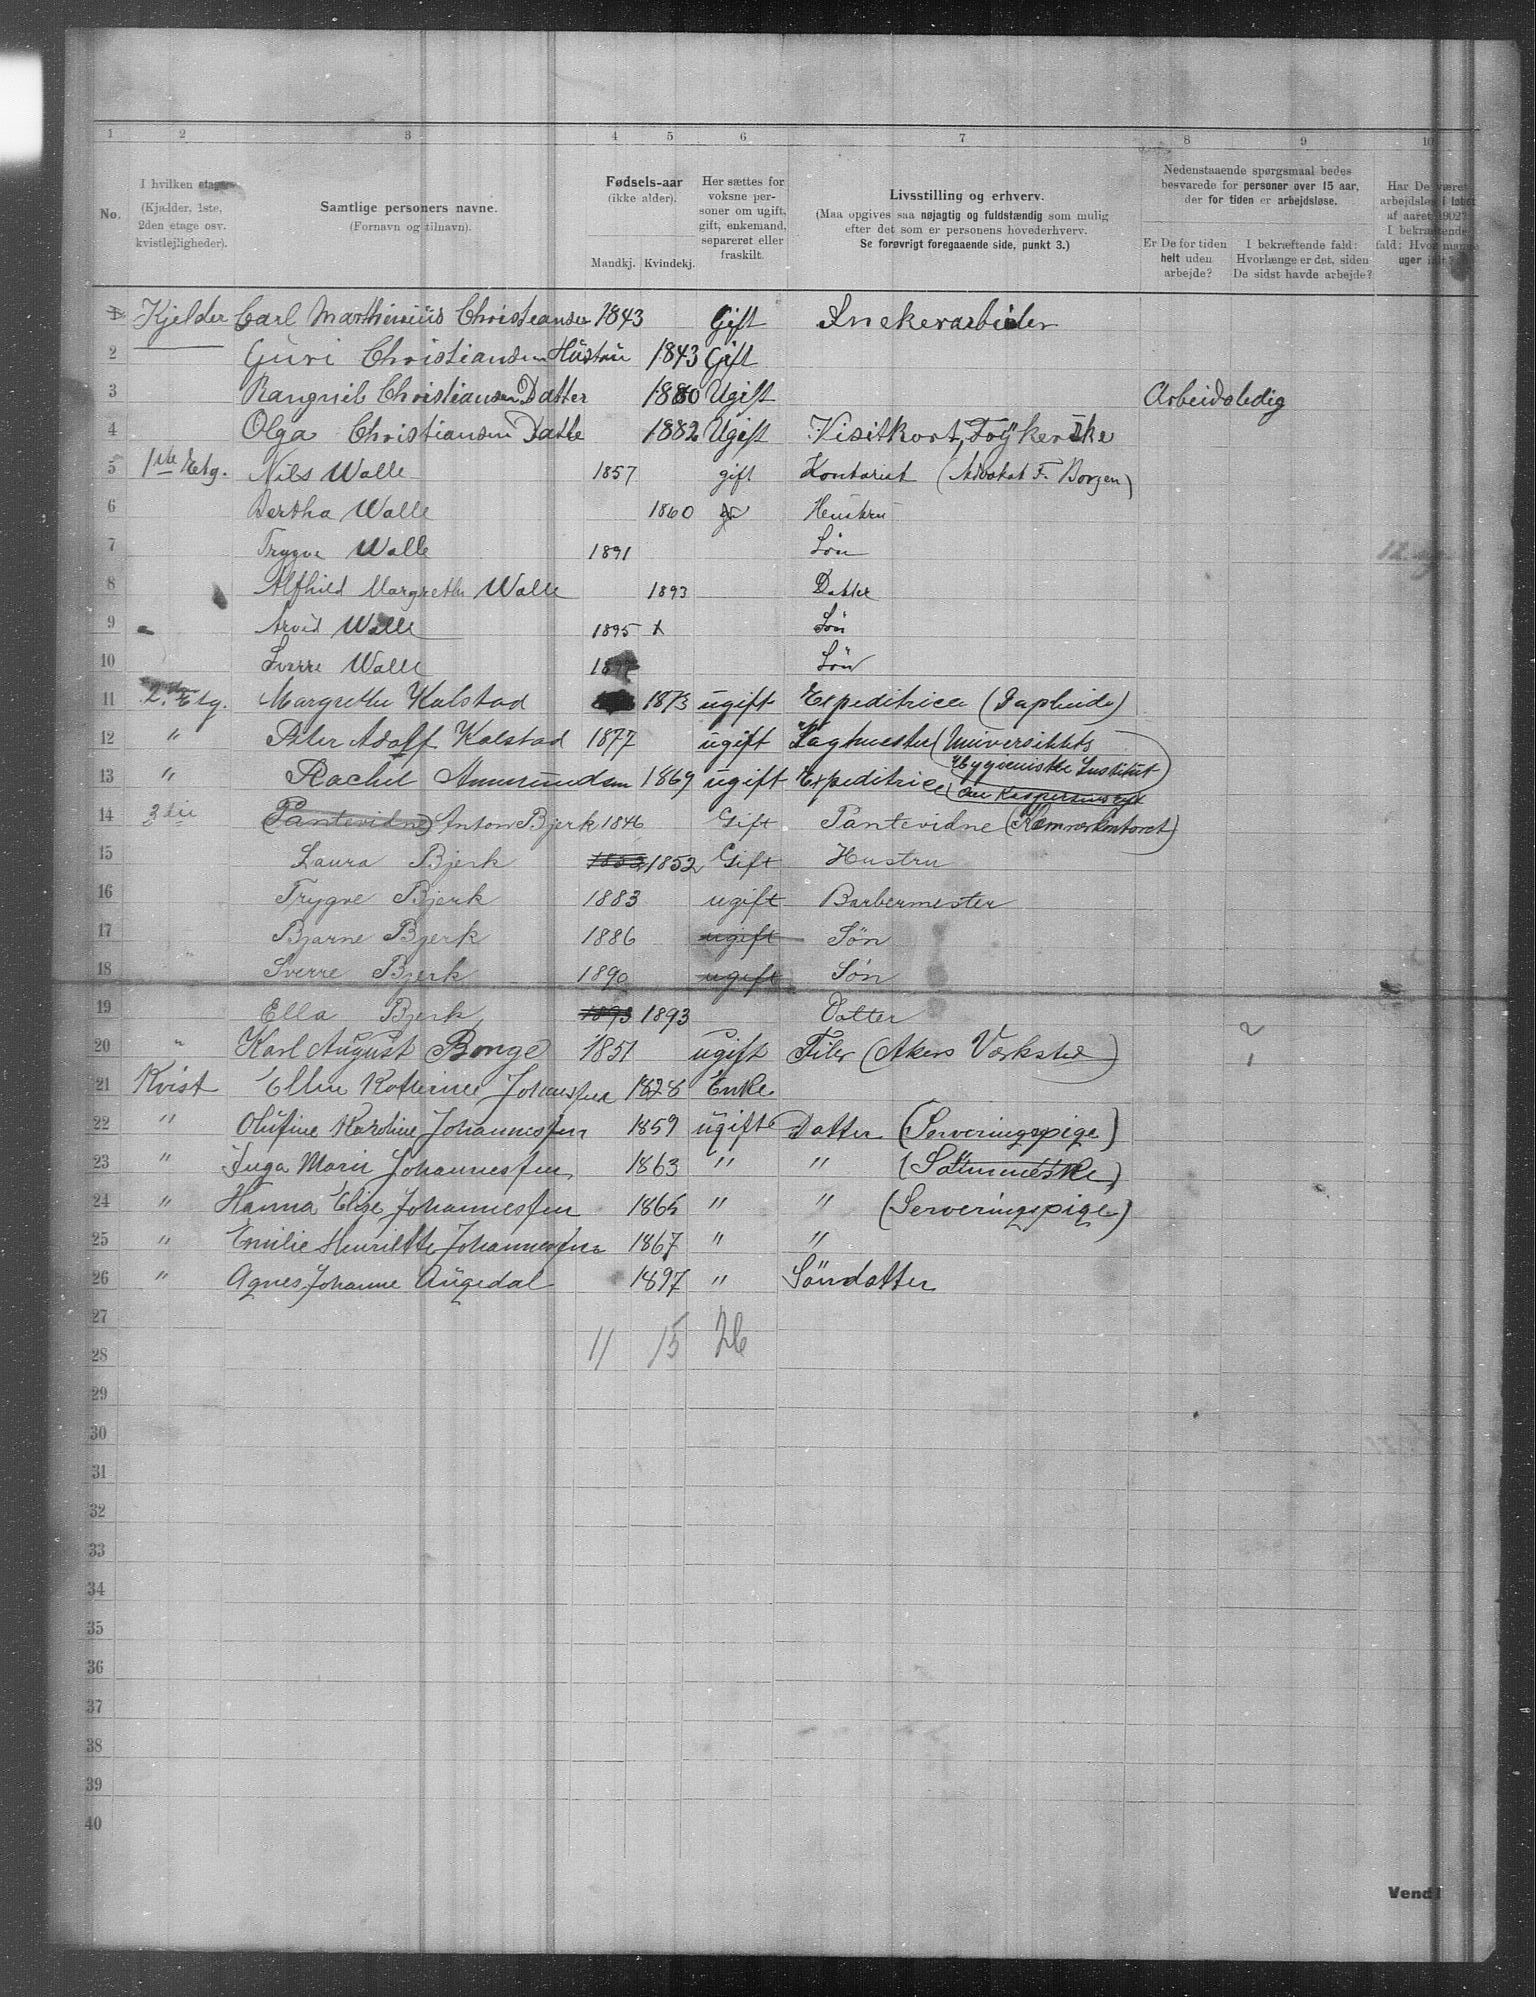 1 2 3 4 5 6 7 8 9 10
No.
I hvilken etage
(Kjælder, 1ste,
2den etage osv.
kvistlejligheder).
Samtlige personers navne.
(Fornavn og tilnavn).
Fødsels-aar
(ikke alder).
Mandkj. Kvindekj.
Her sættes for
voksne per-
soner om ugift,
gift, enkemand,
separeret eller
fraskilt.
Livsstilling og erhverv.
(Maa opgives saa nøjagtig og fuldstændig som mulig
efter det som er personens hovederhverv.
Se forøvrigt foregaaende side, punkt 3.)
Nedenstaaende spørgsmaal bedes
besvarede for personer over 15 aar,
der for tiden er arbejdsløse.
Er De for tiden
helt uden
arbejde?
I bekræftende fald:
Hvorlænge er det, siden
De sidst havde arbejde?
Har De været
arbejdsløs i løbet
af aaret 1902?
I bekræftende
fald: Hvor mange
uger ialt?
1 Kjelder Carl Marthinius Christiansen 1843 Gift Snekerarbeider
2 Guri Christiansen Hustru 1843 Gift
3 Rangnil Christiansen Datter 1880 Ugift Arbeidsledig
4 Olga Christiansen Datte 1882 Ugift Visitkort, Tøÿkerske
5 1ste Etg. Nils Walle 1857 gift Kontorist (Advokat F. Borgen)
6 Bertha Walle 1860 Heustru
7 Trygve Walle 1891 Søn
8 Alfhild Margrethe Walle 1893 Datter
9 Arvid Walle 1895 x Søn
10 Sverre Walle Søn
11 2. Etg. Margrethe Kalstad 1873 ugift Expeditrice (Paphandel)
12 " Peter Adolf Kalstad 1877 ugift Vagtmester (Universitets
Hygieniske Institut)
13 " Rachel Ammundsen 1869 ugift Expeditrice
14 3die (Pantevidne) Anton Bjerk 1846 Gift Pantevidne (Kæmnerkontoret)
15 Laura Bjerk 1852 1852 Gift Hustru
16 Trygve Bjerk 1883 ugift Barbermester
17 Bjarne Bjerk 1886 ugift Søn
18 Sverre Bjerk 1890 ugift Søn
19 Ella Bjerk 1893 1893 Datter
20 " Karl August Bonge 1851 ugift Filer (Akers Værksted)
21 Kvist Ellen Katterinee Johannesen 1828 Enke
22 " Olufine Karoline Johannessen 1859 ugift Datter (Serveringspige)
23 " Inga Marie Johannessen 1863 " " (Sømmeske)
24 " Hanna Elise Johannessen 1865 " " (Serveringspige)
25 " Emilie Henriette Johannessen 1867 " "
26 " Agnes Johanne Augedal 1897 " Søndatter
27
11 15 26
28
29
30
31
32
33
34
35
36
37
38
39
40
Vend!